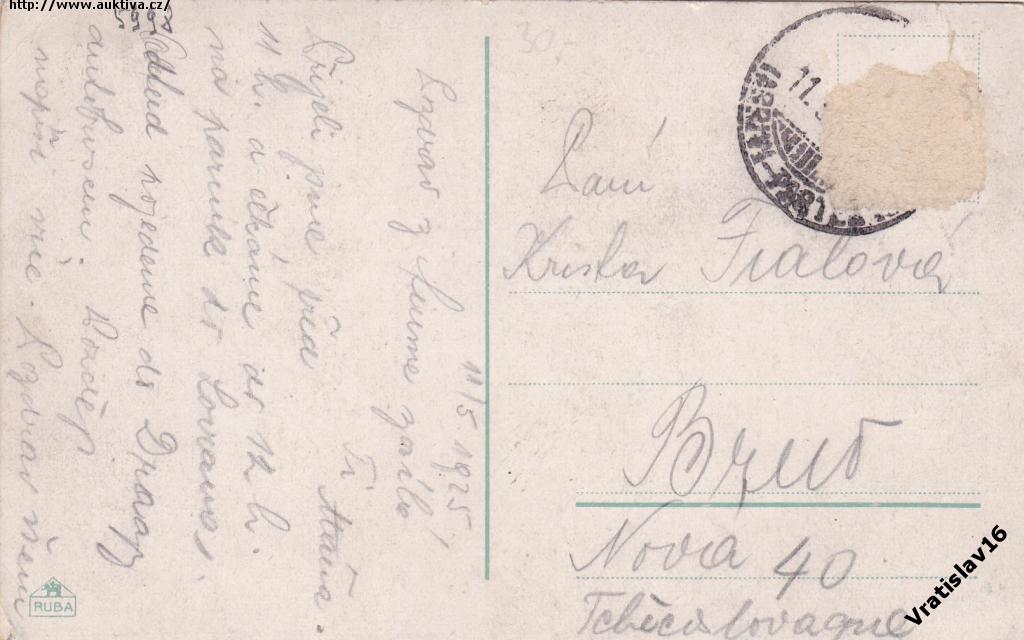 http://www.auktiva.cz/
11/5 1925
Pozdrav z Fiume zasílá
Ti Máňa.
Přijeli jsme před
11 h. a čekáme do 12 h.
na parník do Lovrana.
Odtud pojedeme do Dragy
autobusem.
nepiš mě. Pozdrav všem
30-
11.
Paní
Krista Fialová
Brno
Nová 40
Tchécoslovaque
RUBA
Vratislav16